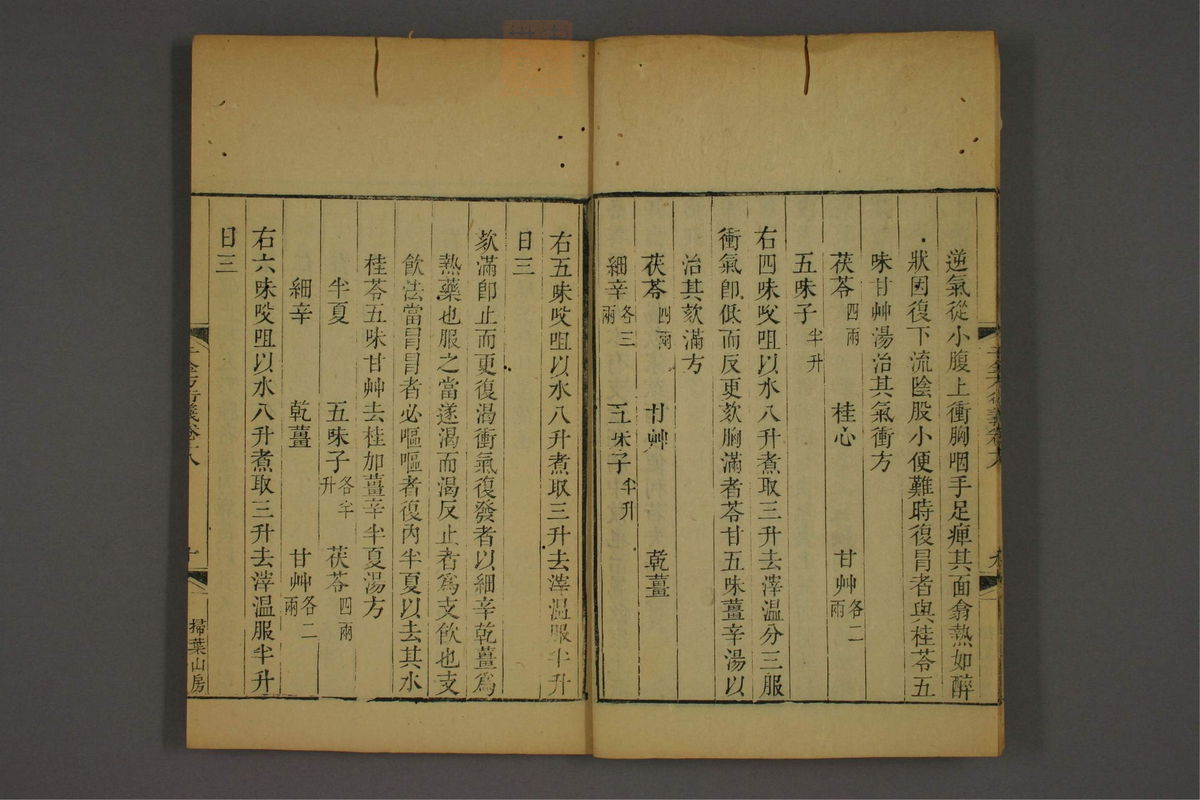 逆氣從小腹上衝胸咽手足痺其面翕熱如醉
狀因復下流陰股小便難時復冒者與桂苓五
味甘艸湯治其氣衝方
茯苓四兩 桂心 甘艸各二兩
五味子半升
右四味㕮咀以水八升煮取三升去滓溫分三服
衝氣卽低而反更欬胸滿者苓甘五味薑辛湯以
治其欬滿方
茯苓四兩 甘艸 乾薑
細辛各三兩 五味子半升
右五味㕮咀以水八升煮取三升去滓溫服半升
日三
欬滿卽止而更復渴衝氣復發者以細辛乾薑爲
熱藥也服之當遂渴而渴反止者爲支飲也支
飲法當冒冒者必嘔嘔者復內半夏以去其水
桂苓五味甘艸去桂加薑辛半夏湯方
半夏 五味子各半升 茯苓四兩
細辛 乾薑 甘艸各二兩
右六味㕮咀以水八升煮取三升去滓溫服半升
日三
千金方衍義卷十八
掃葉山房